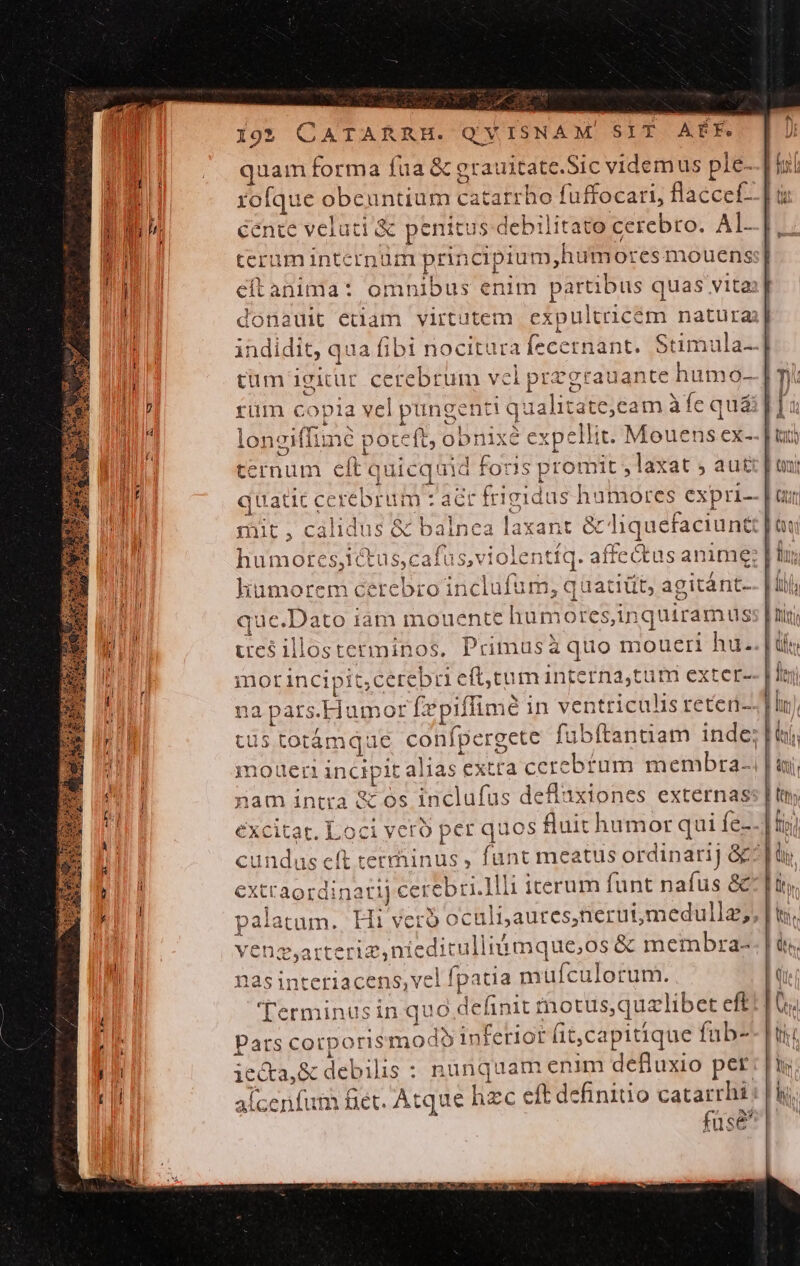 192 CATARRH. QVISNAM SIT AFF.
quam forma ſua & grauitate.Sic videmus ple-
roſque obeuntium catarrho ſuffocari, flacceſ-
cente veluti & penitus debilitato cerebro. Al-
terum internum principium,humores mouens
eſt anima: omnibus enim partibus quas vita
donauit etiam virtutem expultricem natura
indidit, qua ſibi nocitura ſecernant. Stimula-
tum igitur cerebrum vel prægrauante humo-
rum copia vel pungenti qualitate,eam à ſe quá
longiſſimè poteſt, obnixè expellit. Mouens ex-
ternum eſt quicquid foris promit ,laxat , aut
quatit cerebrum : aër frigidus humores expri-
mit , calidus & balnea laxant & liquefaciunt
humores,ictus,caſus,violentíq. affectus anime
humorem cerebro incluſum, quatiūt, agitánt-
que.Dato iam mouente humores,inquiramus
tres illos terminos. Primus à quo moueri hu-
mor incipit,cerebri eſt,tum interna,tum exter-
na pars.Humor ſæpiſſimè in ventriculis reten-
tus totámque conſpergete ſubſtantiam inde
moueri incipit alias extra cerebrum membra-
nam intra & os incluſus defluxiones externas
excitat. Loci verò per quos fluit humor qui ſe-
cundus eſt terminus , ſunt meatus ordinarij &
extraordinarij cerebri.Illi iterum ſunt naſus &
palatum. Hi verò oculi,aures,nerui,medullæ,
venæ,arteriæ,mediitulliúmque,os & membra-
nas interiacens,vel ſpatia muſculorum.
Terminus in quo definit motus,quælibet eſt
pars corporis modò inferior ſit,capitíque ſub-
iecta,& debilis : nunquam enim defluxio per
aſcenſum fiet. Atque hæc eſt definitio catarrhi
fusè